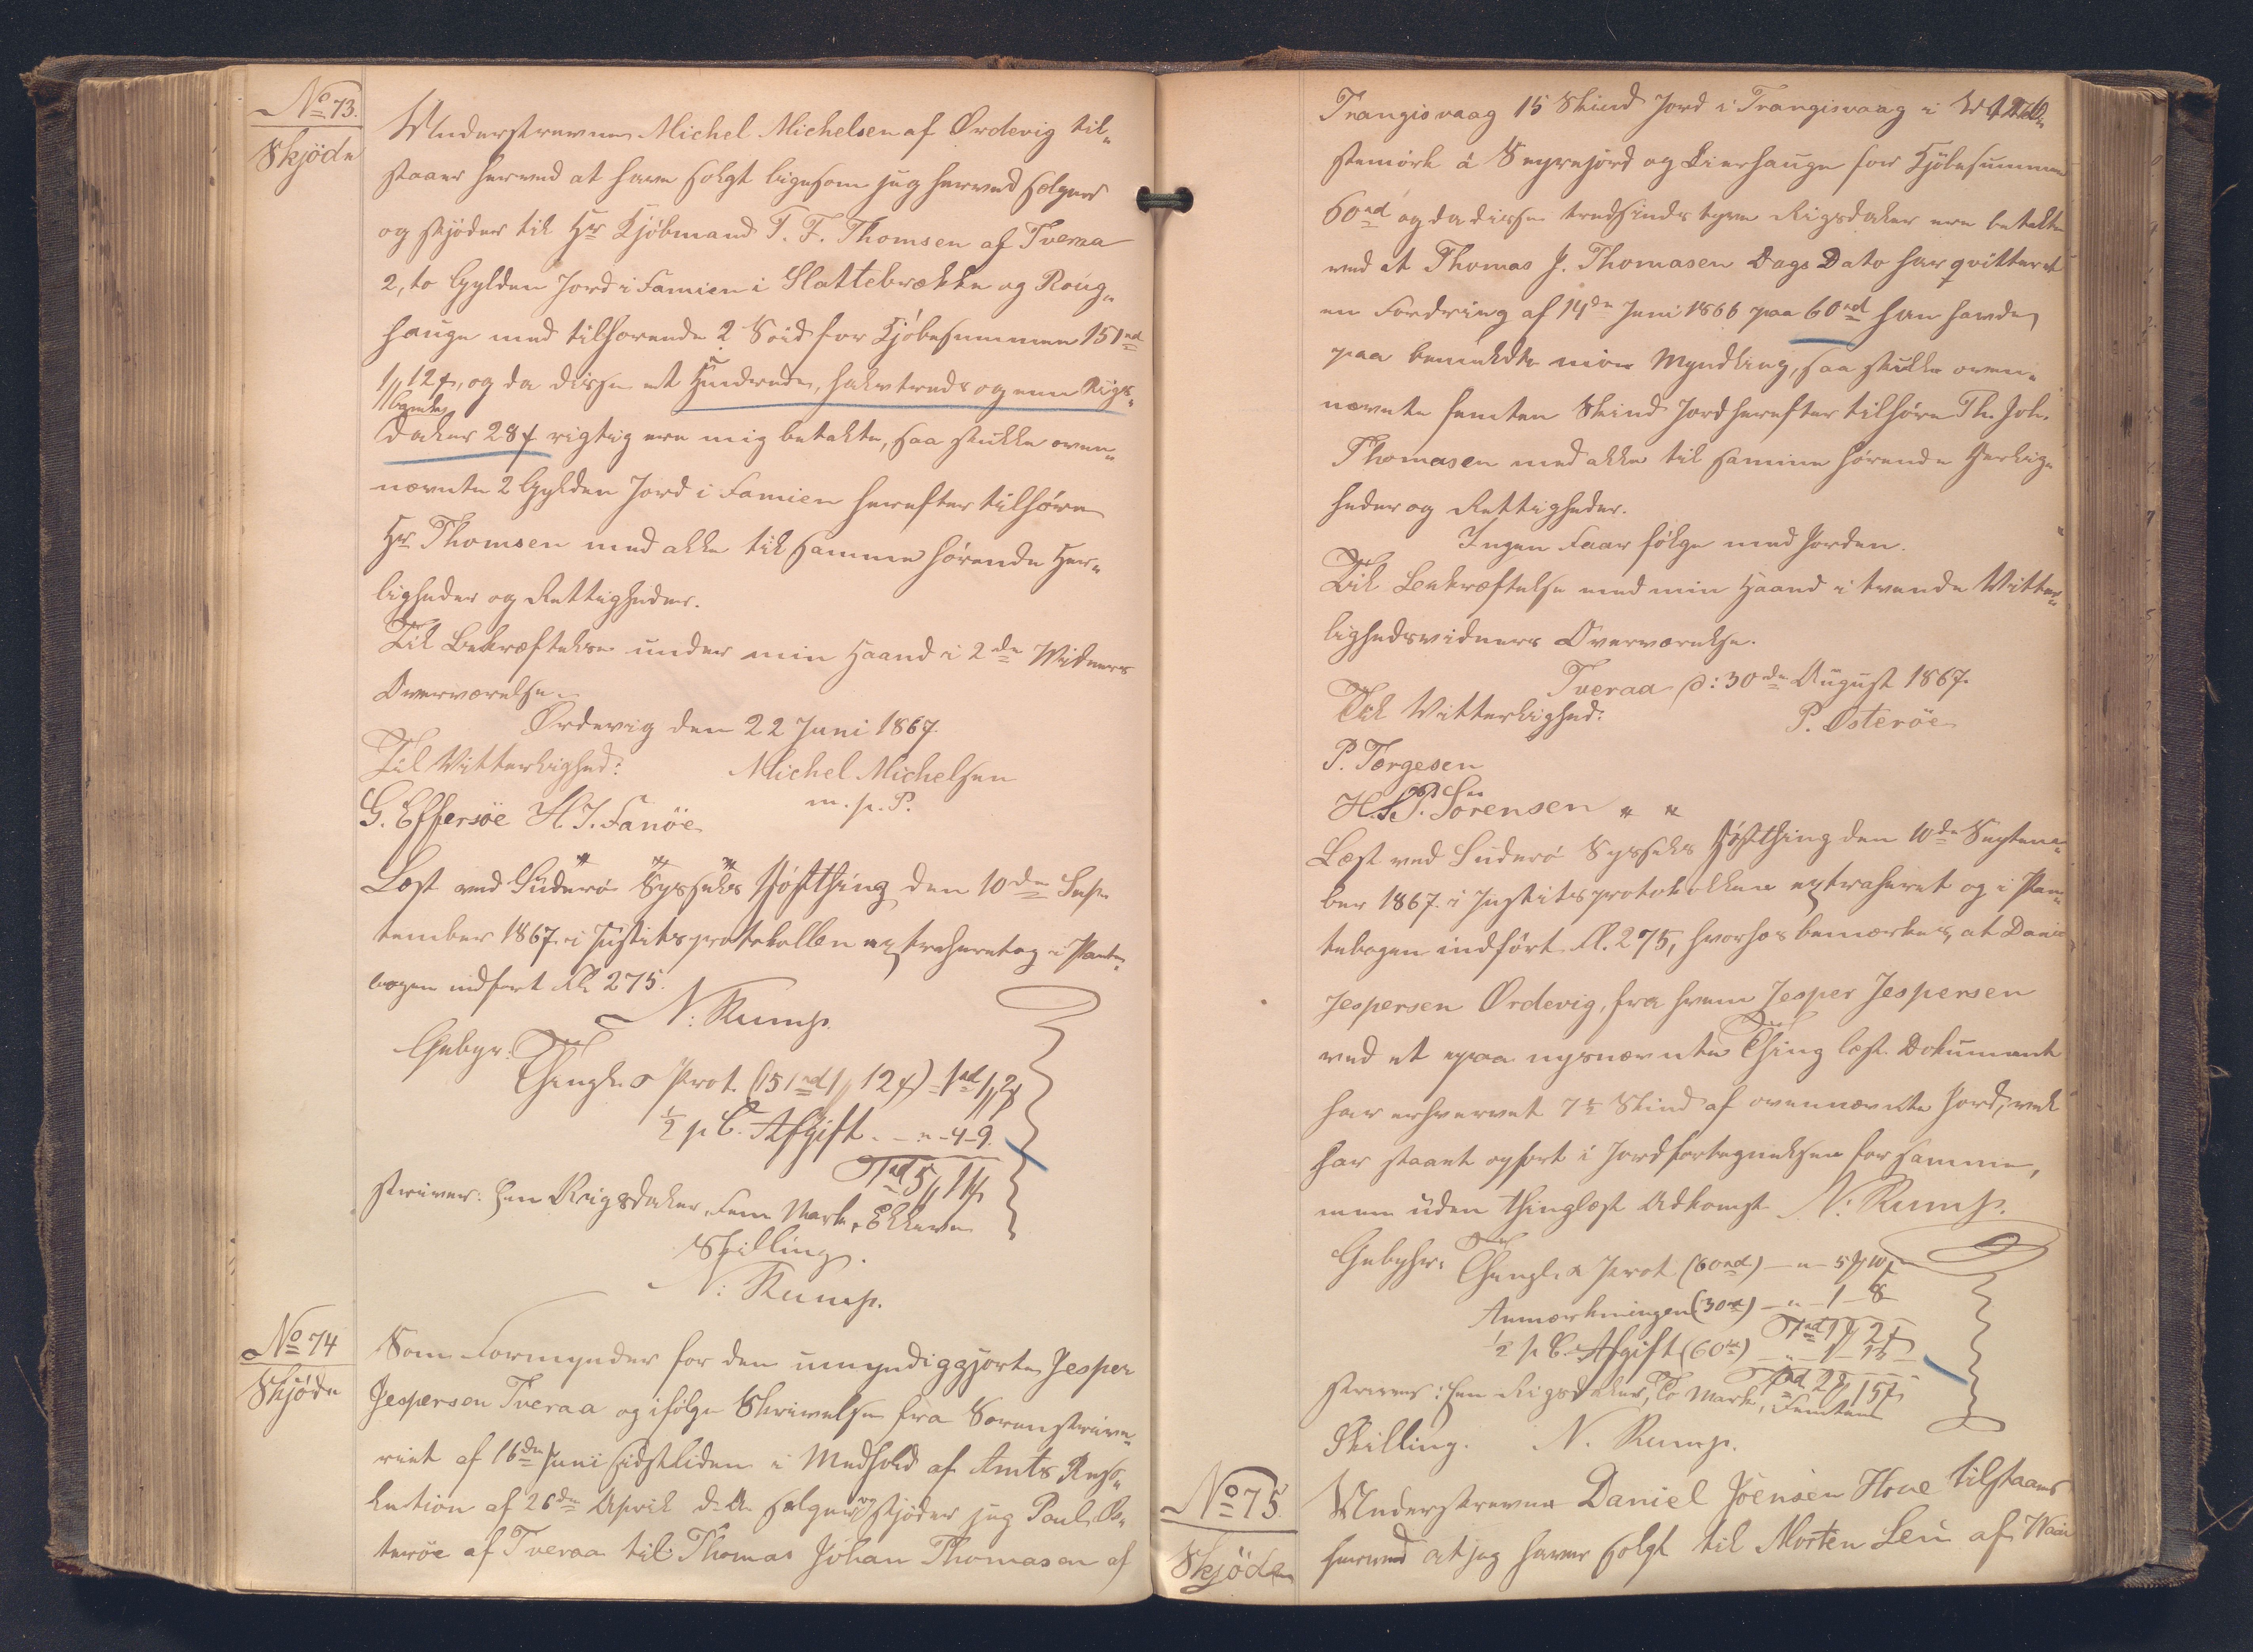 No 73.
Skjöde
Underskrevne Michel Michelsen af Ørdevig til-
staaer herved at have solgt ligesom jeg herved sælger
og skjöder til Hr Kjöbmand T. F. Thomsen af Tveraa
2, to Gylden Jord i Famien i Slattebrække og Roug-
hauge med tilhörende 2 Soid for Kjöbesummen 151 rd
1 12 β, og da disse et Hundrede, halvtreds og een Rigs-
daler 28 β rigtig ere mig betalte, saa skulle oven-
nævnte 2 Gylden Jord i Famien herefter tilhöre
Hr Thomsen med alle til samme hörende Her-
ligheder og Rettigheder.
Til Bekræftelse under min Haand i 2de Vidners
Overværelse.
Ørdevig den 22 Juni 1867.
Til Vitterlighed: Michel Michelsen
G. Effersöe H. J. Fanöe m. p. P.
Læst ved Suderö Syssels Höstthing den 10de Sep-
tember 1867. i Justitsprotokollen extraheret og i Pante-
bogen indfört Fol. 275.
N: Rump.
Gebyr:
Thingl. & Prot. (151 rd 1 12 β) = 1 rd 1 2 β
½ p C. Afgift. - " - 4 - 9.
1 rd 5 11 β
skriver: Een Rigsdaler, Fem Mark, Elleve
Skilling.
N: Rump.
No 74
Skjöde
Som Formynder for den umyndiggjorte Jesper
Jespersen Tveraa og ifölge Skrivelse fra Sorenskrive-
riet af 16de Juni sidstleden i Medhold af Amts Reso-
lution af 26de April d. A. sælger og skjöder jeg Poul Øs-
teröe af Tveraa til Thomas Johan Thomasen af
Trangisvaag 15 Skind Jord i Trangisvaag i
stemörk á Seyrejord og Lierhauge for Kjöbesummen
60 rd og da disse tredsindstyve Rigsdaler ere betalte
ved at Thomas J. Thomasen Dags Dato har qvitteret
en Fordring af 14de Juni 1866 paa 60 rd han havde
paa bemeldte min Myndling, saa skulle oven-
nævnte femten Skind Jord herefter tilhöre Th. Joh.
Thomasen med alle til samme hörende Herlig-
heder og Rettigheder.
Ingen Faar fölge med Jorden.
Til Bekræftelse med min Haand i tvende Vitter-
lighedsvidners Overværelse.
Tveraa d: 30de August 1867.
Til Vitterlighed: P. Østeröe
P. Torgesen
H. S. P. Sörensen
Læst ved Suderö Syssels Höstthing den 10de Septem-
ber 1867. i Justitsprotokollen extraheret og i Pan-
tebogen indfört Fol. 275, hvorhos bemærkes, at Daniel
Jespersen Ørdevig, fra hvem Jesper Jespersen
ved et paa nysnævnte Thing læst Dokument
har erhvervet 7½ Skind af ovennævnte Jord, vel
har staaet opfört i Jordfortegnelsen for samme,
men uden thinglæst Adkomst. N: Rump.
Gebyhr: Thingl. & Prot. (60 rd) - " - 5 10
Anmærkningen (30 rd) - " - 1 - 8
1 rd 1 2 β
½ p C. Afgift (60 rd) - " - 1 - 13
1 rd 2 15 β
skriver: Een Rigsdaler, To Mark, Femten
Skilling. N. Rump.
No 75.
Skjöde
Underskrevne Daniel Joensen Hove tilstaaer
herved at jeg haver solgt til Morten Leu af Waai